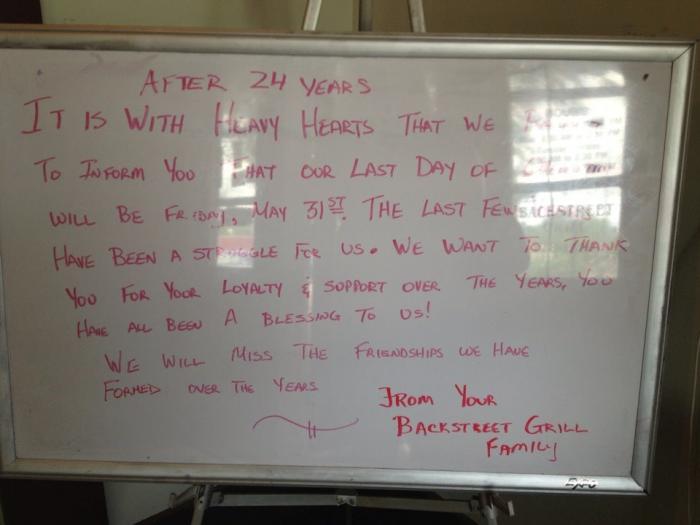 AFTER 24 YEARS
IT IS WITH HEAVY HEARTS THAT WE
TO INFORM YOU THAT OUR LAST DAY OF
WILL BE FRIDAY, MAY 31ST. THE LAST FEW
HAVE BEEN A STRUGGLE FOR US. WE WANT TO THANK
YOU FOR YOUR LOYALTY & SUPPORT OVER THE YEARS, YOU
HAVE ALL BEEN A BLESSING TO US!
WE WILL MISS THE FRIENDSHIPS WE HAVE
FORMED OVER THE YEARS
FROM YOUR
BACKSTREET GRILL
FAMILY
EXPO